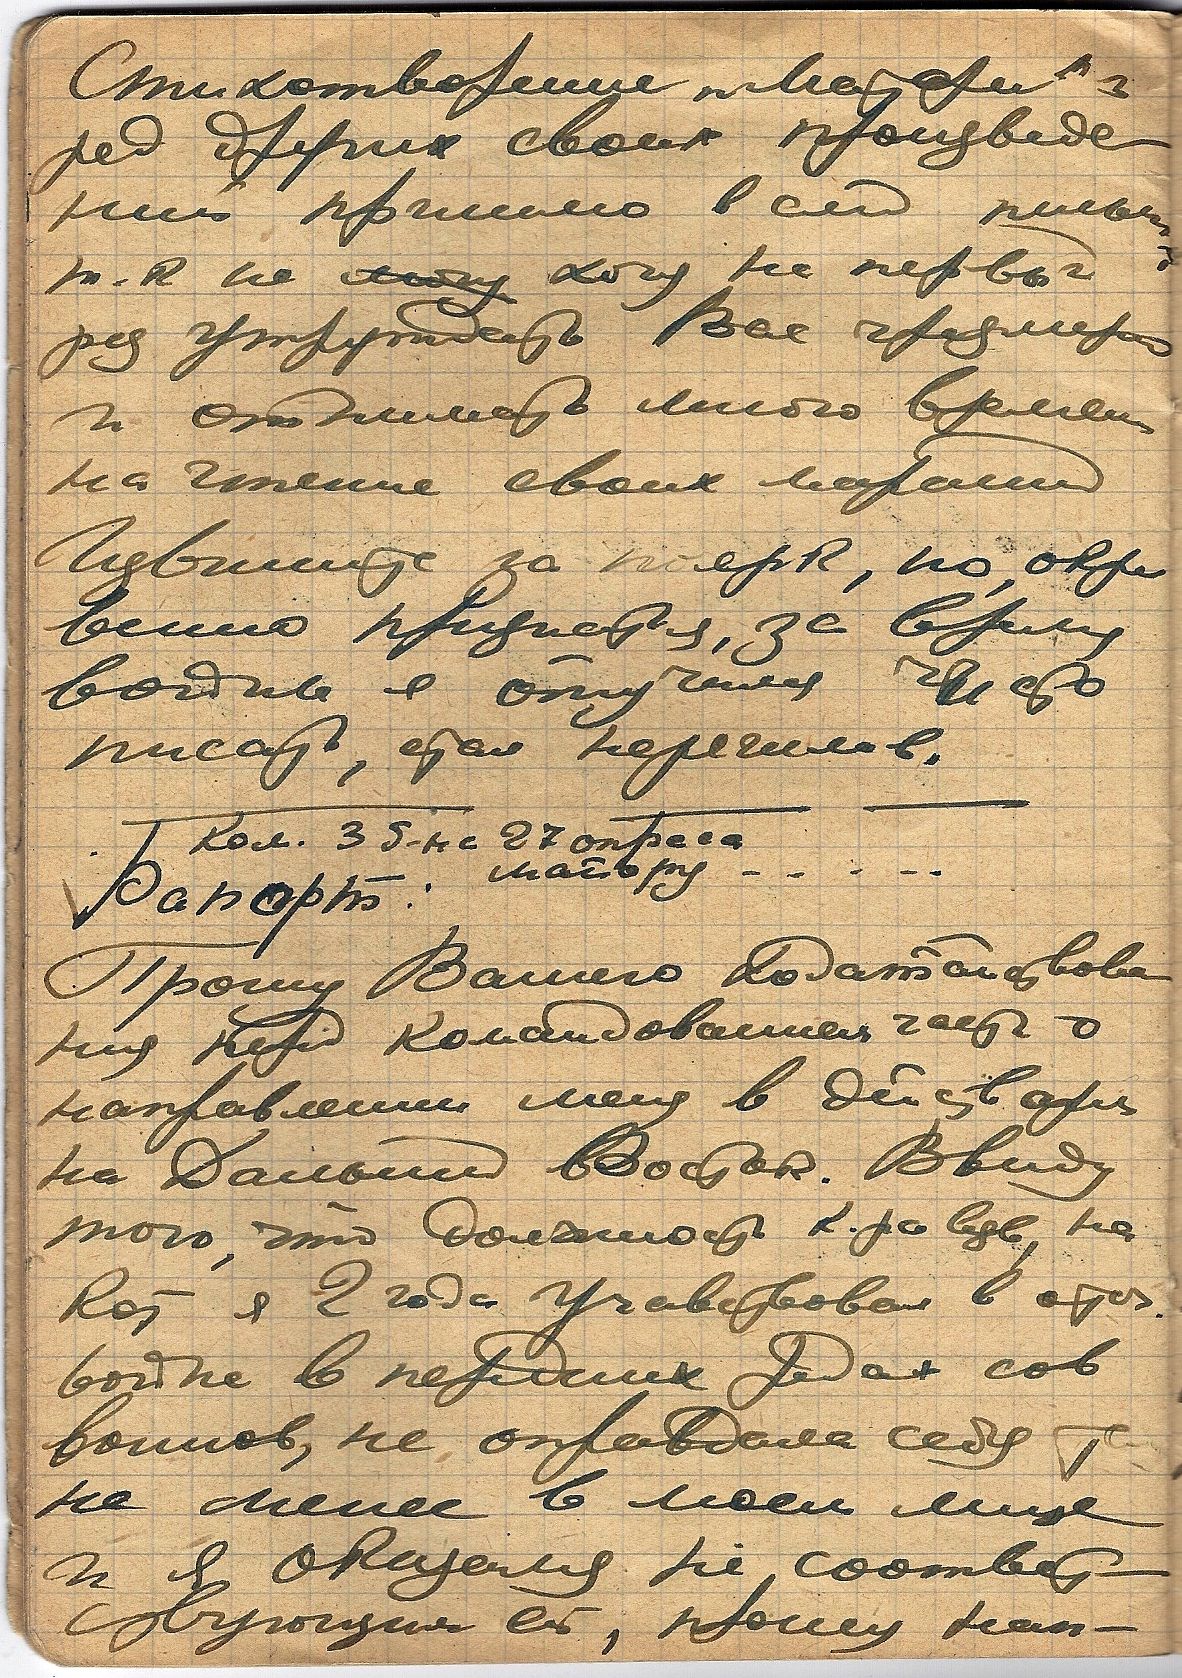 Стихотворение „Матери“ и
ряд других своих произведе-
ний пришлю в след письм
т.к не могу хочу на первый
раз утруждать Вас чрезмерно
и отнимать много времени
на чтение своих мараний
Извините за почерк, но, откро
венно признаться, за время
войны я отучился чисто
писать, стал неряшлив.
Ком. 35-й с 27 опраса
майору - - . . . --
Рапорт.
Прошу Вашего ходатайствова-
ния перед командованием части о
направлении меня в действ армию
на Дальний Восток. Ввиду
того, что должность к.ра взв, на
кот я 2 года участвовал в отеч.
войне в передних рядах сов
воинов, не оправдала себя
не менее в моем лице
и я оказался не соответ-
ствующим ей, прошу нап-